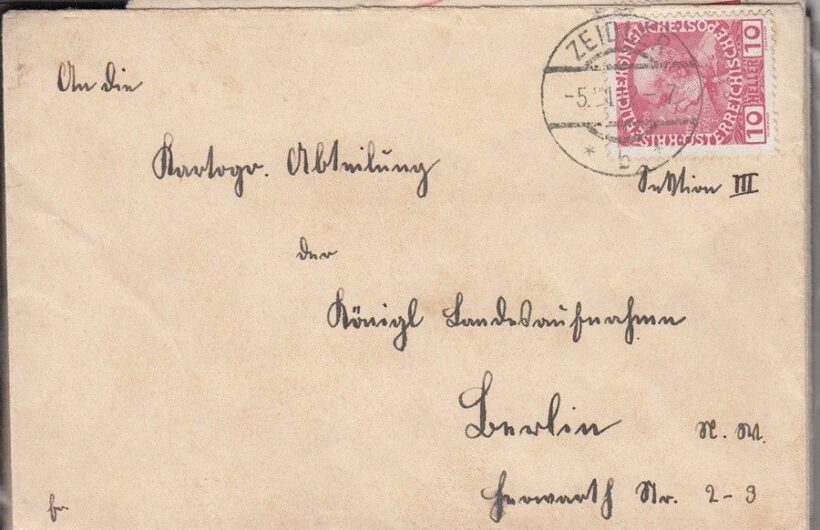 ZEID
-5. -7
* b *
KAISERLICHE KÖNIGLICHE ÖSTERREICHISCHE POST
10 HELLER 10
An die
Kartogr. Abteilung
Sektion III
der
Königl Landesaufnahme
Berlin N. W.
Herwarth Str. 2-3